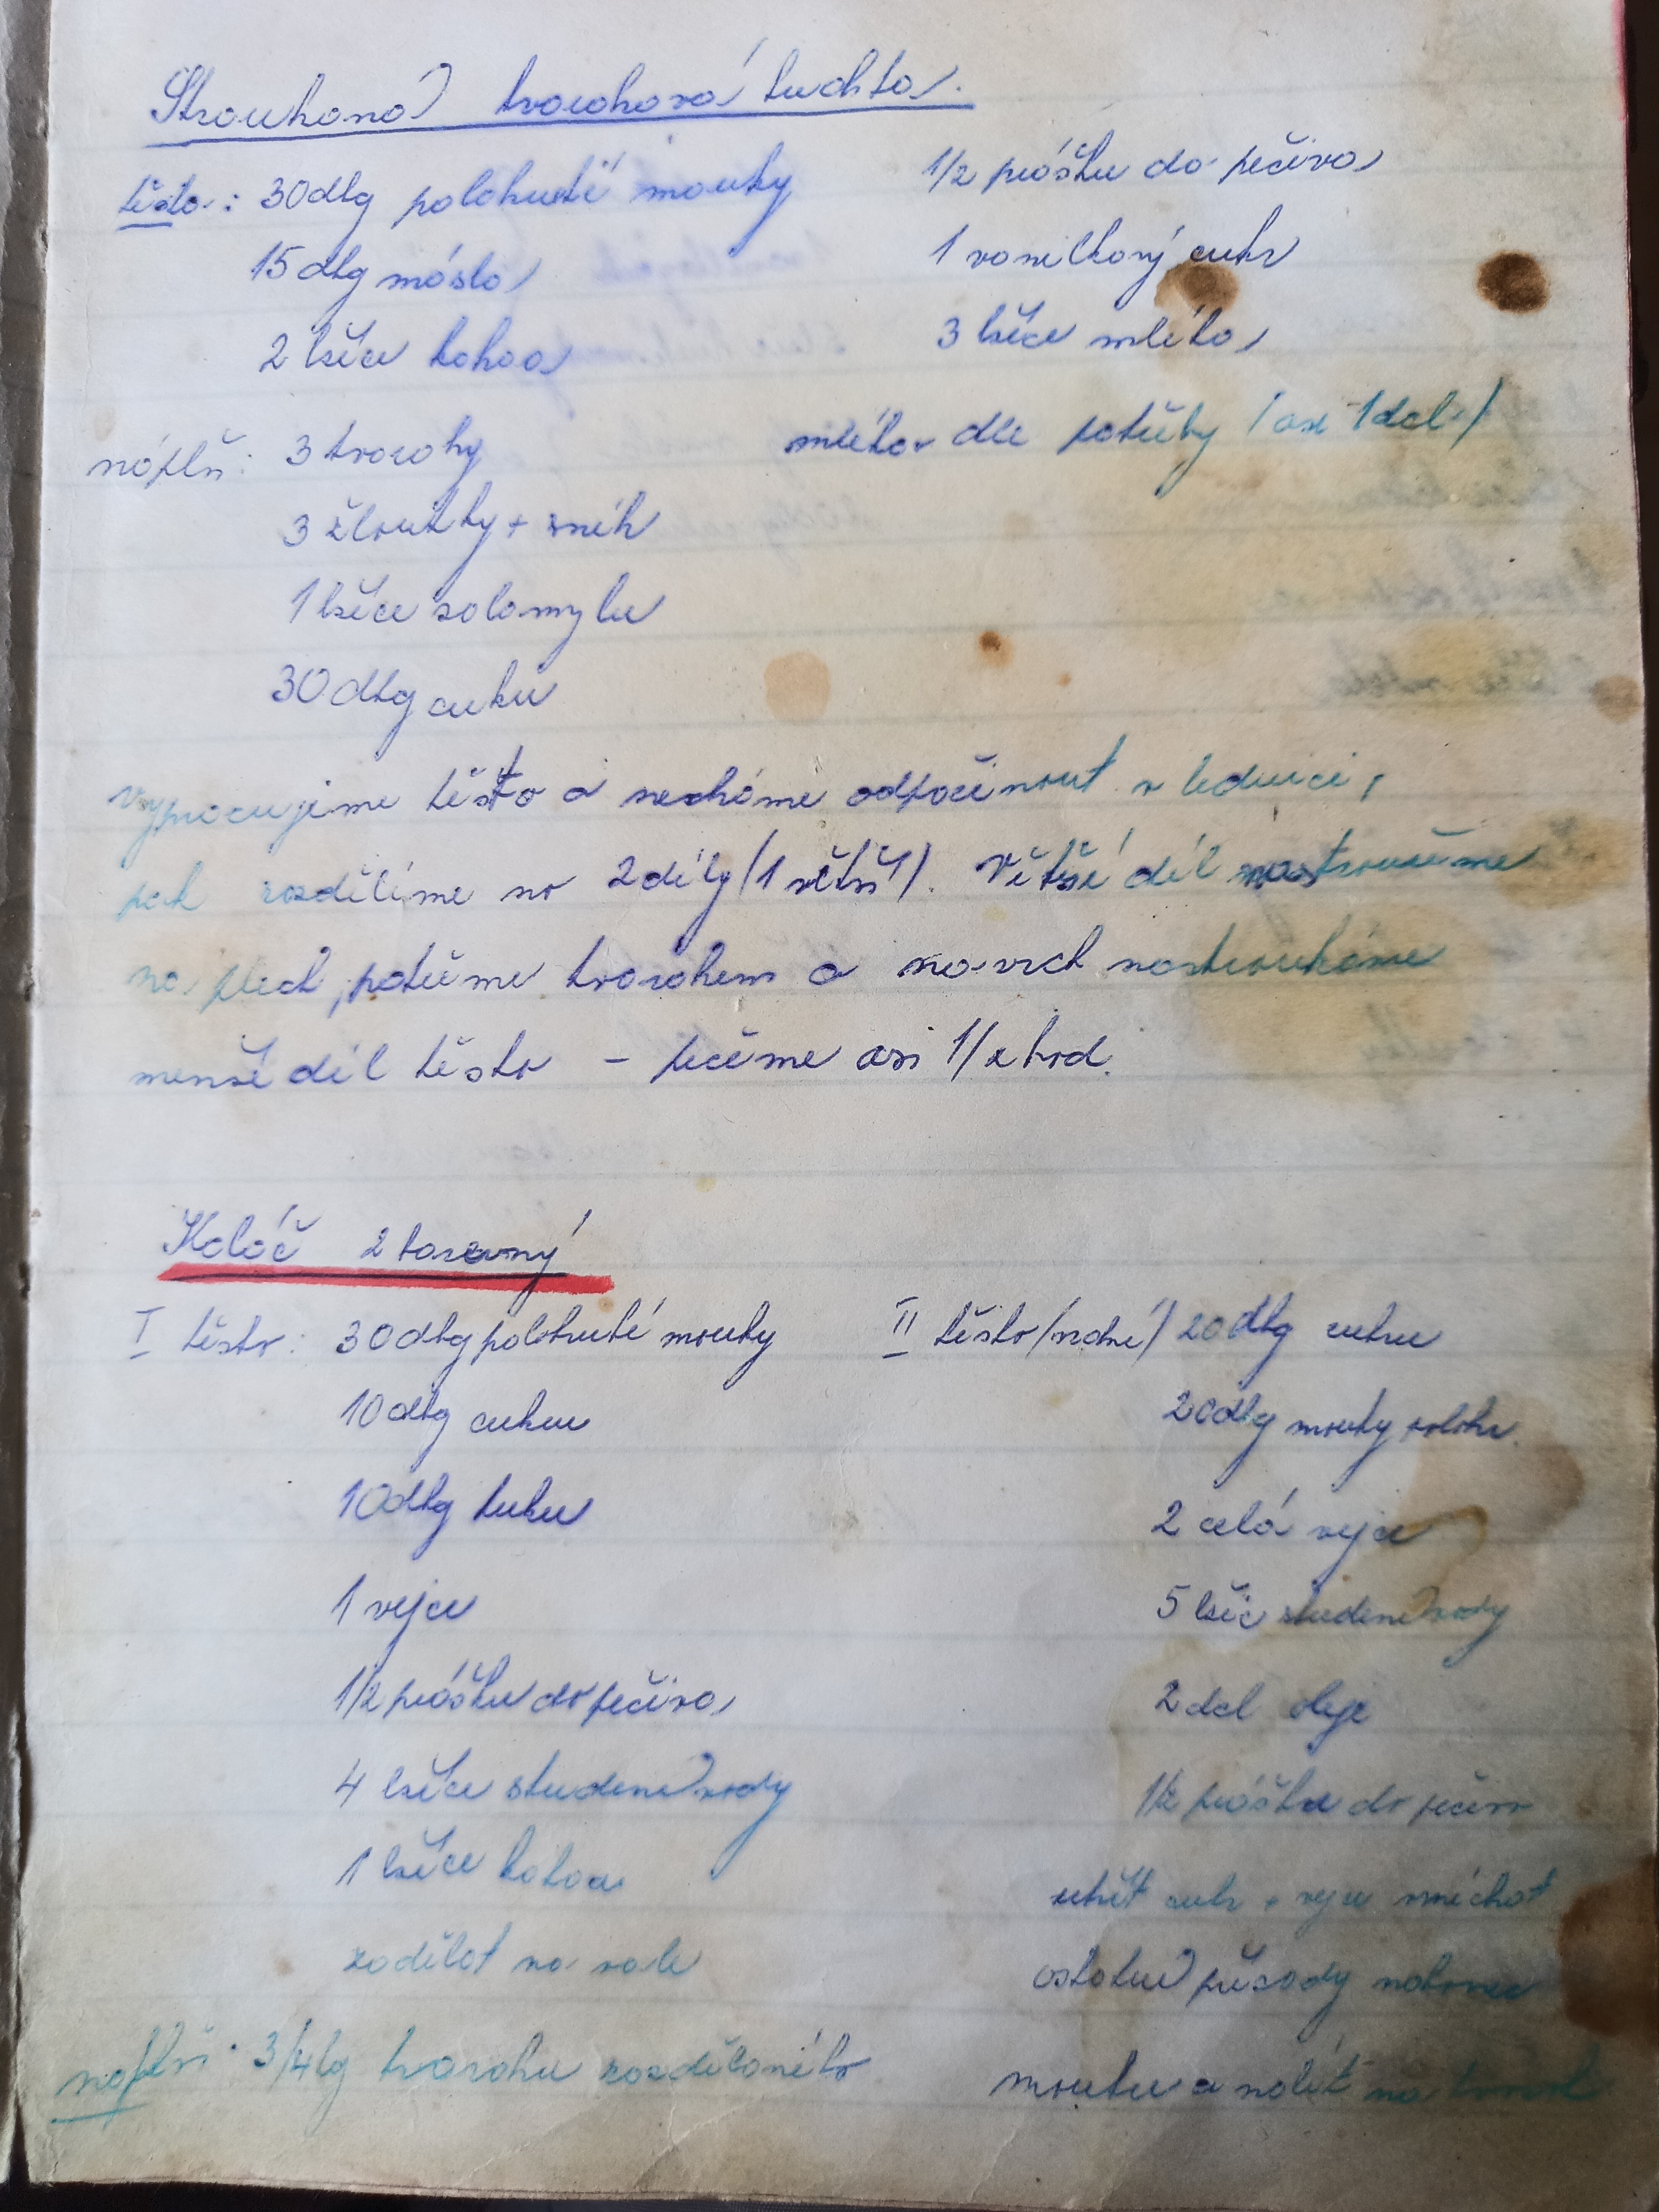 Strouhaná tvarohová buchta.
těsto: 30dkg polohrubé mouky
15dkg másla
2 lžíce kakaa
1/2 prášku do pečiva
1 vanilkový cukr
3 lžíce mléka
náplň: 3 tvarohy
3 žloutky + sníh
1 lžíce solamylu
30dkg cukru
mléka dle potřeby /asi 1dcl/
Vypracujeme těsto a necháme odpočinout v lednici,
pak rozdělíme na 2díly/1 větší/. Větší díl nastrouháme
na plech, potřeme tvarohem a navrch nastrouháme
menší díl těsta – pečeme asi 1/2 hod.
Koláč 2 barevný
I těsto: 30dkg polohrubé mouky
10dkg cukru
10dkg tuku
1 vejce
1/2 prášku do pečiva
4 lžíce studené vody
1 lžíce kakaa
zadělat na vale
náplň: 3/4kg tvarohu rozdělaného
II těsto/vrchní/ 20dkg cukru
20dkg mouky polohr.
2 celá vejce
5 lžic studené vody
2dcl oleje
1/2 prášku do pečiva
utřít cukr + vejce smíchat
ostatní přísady nakonec
mouku a nalít na tvaroh